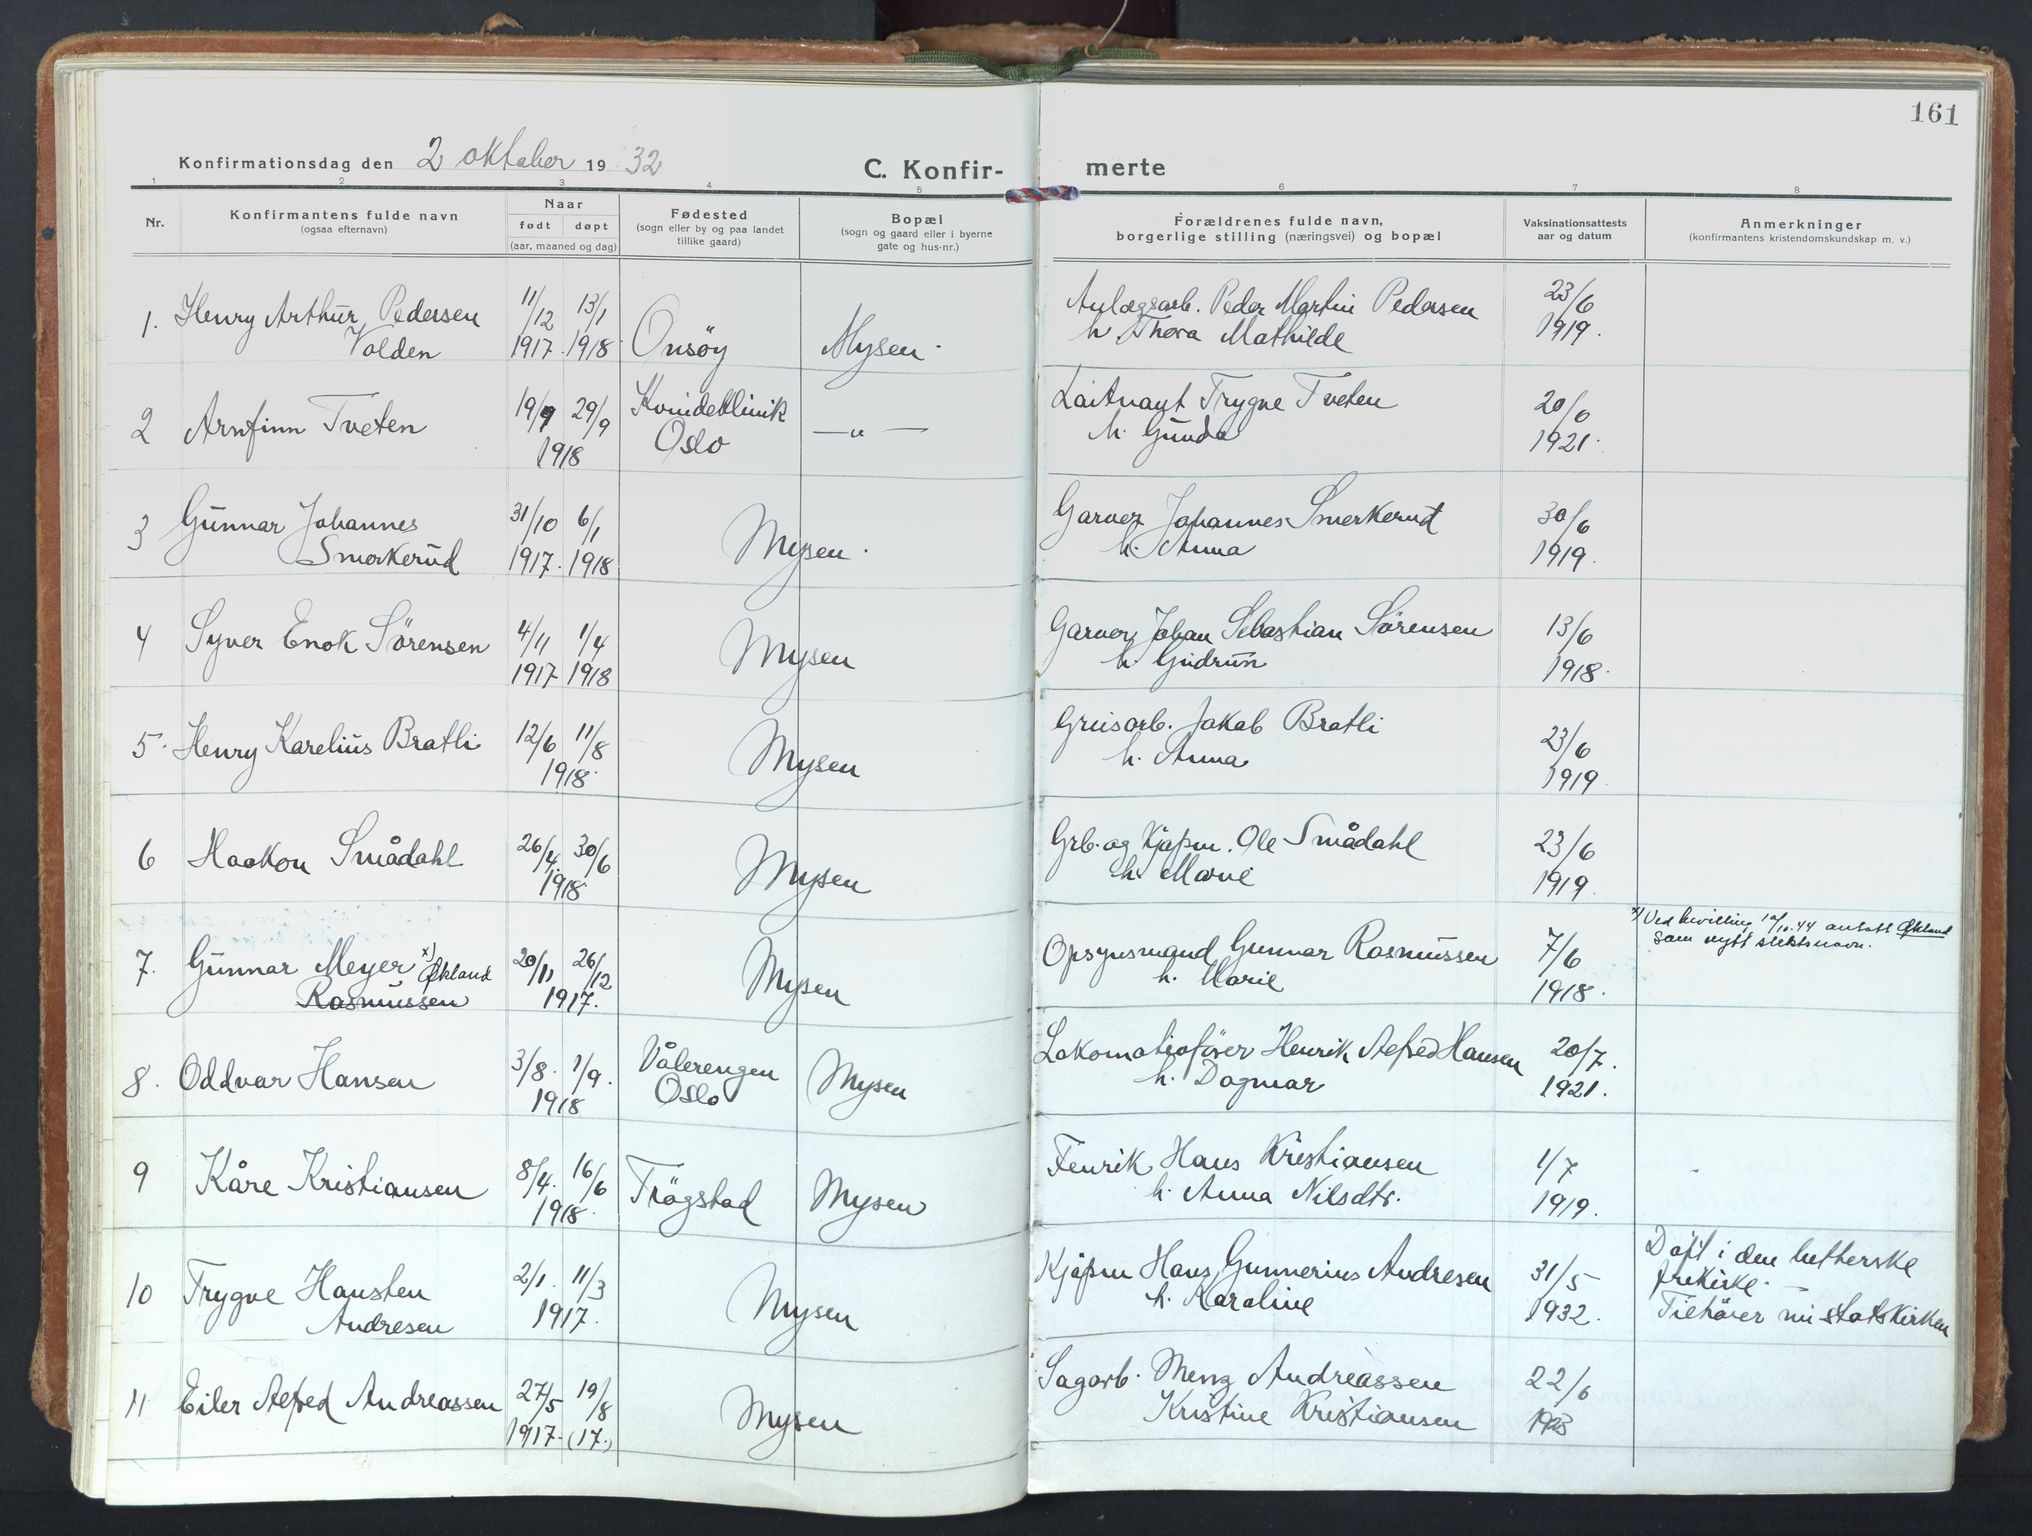 161
Konfirmationsdag den 2 oktober 1932
C. Konfir-
merte
1 2 3 4 5 6 7 8
Nr.
Konfirmantens fulde navn
(ogsaa efternavn)
Naar
født døpt
(aar, maaned og dag)
Fødested
(sogn eller by og paa landet
tillike gaard)
Bopæl
(sogn og gaard eller i byerne
gate og hus-nr.)
Forældrenes fulde navn,
borgerlige stilling (næringsvei) og bopæl
Vaksinationsattests
aar og datum
Anmerkninger
(konfirmantens kristendomskundskap m. v.)
1. Henry Arthur Pedersen 11/12 13/1 Anlægsarb. Peder Martin Pedersen 23/6
Volden 1917. 1918 Onsöy Mysen. h. Thora Mathilde 1919.
2 Arnfinn Tveten 19/9 29/9 Kvindeklinik —„— Laitnant Trygve Tveten 20/6
1918 Oslo h. Gunda 1921.
3 Gunnar Johannes 31/10 6/1 Mysen. Garver Johannes Smerkerud 30/6
Smerkerud 1917. 1918 h. Anna 1919.
4 Syver Enok Sørensen 4/11 1/4 Mysen Garver Johan Sebastian Sørensen 13/6
1917 1918 h. Gudrun 1918.
5. Henry Karelius Bratli 12/6 11/8 Mysen Grisarb. Jakob Bratli 23/6
1918. h. Anna 1919
6 Haakon Smådahl 26/4. 30/6 Mysen Grb. og Kjøpm. Ole Smådahl 23/6
1918 h. Marie 1919.
7. Gunnar Meyer x) Økland 20/11 26/12 Mysen Opsynsmand Gunnar Rasmussen 7/6 x) Ved bevilling 10/10.44 antatt Økland
Rasmussen 1917. h. Marie 1918. som nytt slektsnavn.
8. Oddvar Hansen 3/8. 1/9. Vålerengen Mysen Lokomotivfører Henrik Alfred Hansen 20/7.
1918 Oslo h. Dagmar 1921.
9 Kåre Kristiansen 8/4. 16/6 Trögstad Mysen Fenrik Hans Kristiansen 1/7
1918. h. Anna Nilsdtr. 1919.
10 Trygve Hansten 2/1. 11/3 Mysen Kjøpm Hans Gunnerius Andresen 31/5 Døpt i den lutherske
Andresen 1917. h. Karoline 1932. frikirke. —
Tilhører nu statskirken
11 Eiler Alfred Andreassen 27/5 19/8 Mysen Sagarb. Meng Andreassen 22/6
1917. (17.) Kristine Kristiansen